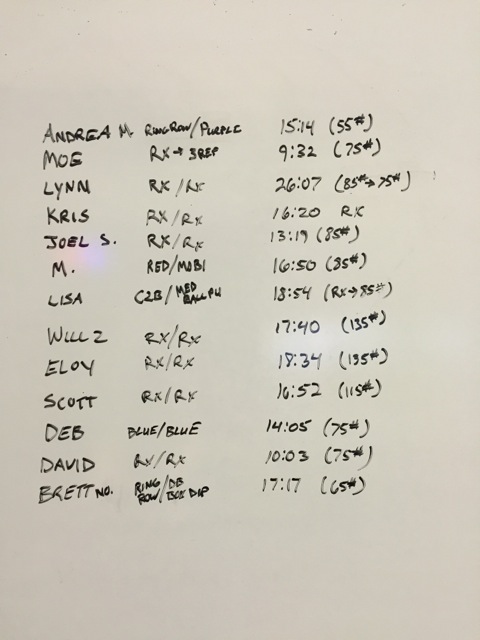 ANDREA M. RINGROW/PURPLE 15:14 (55#)
MOE RX→3REP 9:32 (75#)
LYNN RX/RX 26:07 (85#→75#)
KRIS RX/RX 16:20 RX
JOEL S. RX/RX 13:19 (85#)
M. RED/MOBI 16:50 (85#)
LISA C2B/MED BALL PU 18:54 (RX→85#)
WILL Z RX/RX 17:40 (135#)
ELOY RX/RX 18:34 (135#)
SCOTT RX/RX 16:52 (115#)
DEB BLUE/BLUE 14:05 (75#)
DAVID RX/RX 10:03 (75#)
BRETT NO. RING ROW/DB BOX DIP 17:17 (65#)